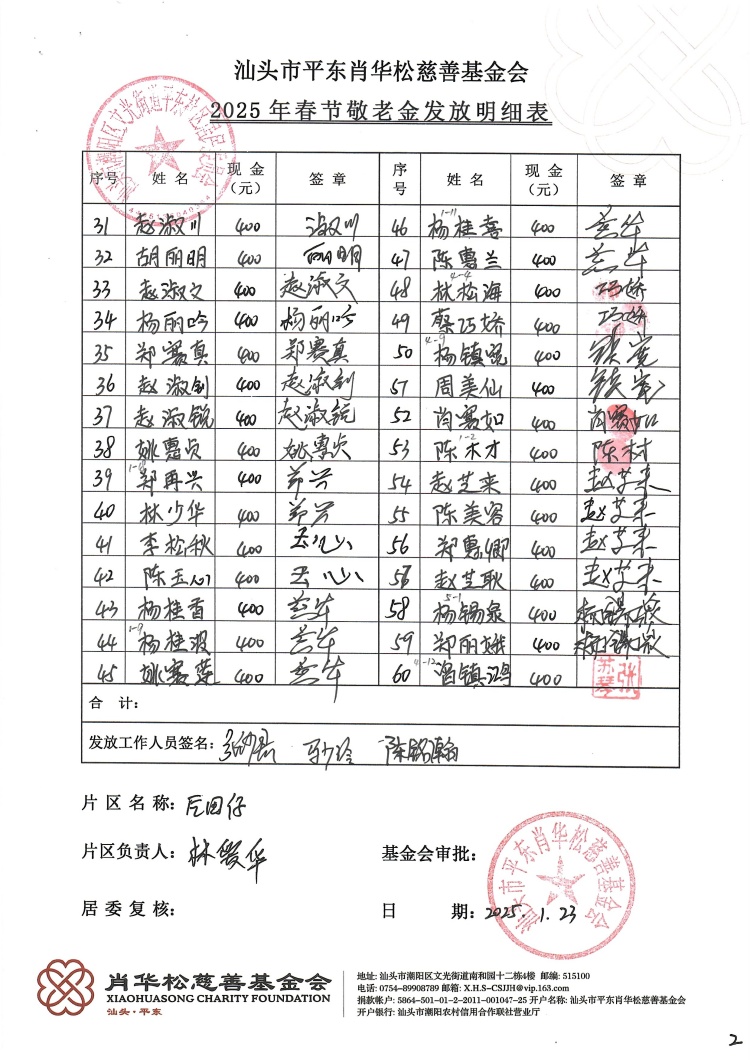 汕头市平东肖华松慈善基金会
2025年春节敬老金发放明细表
序号 姓名 现金（元） 签章 序号 姓名 现金（元） 签章
31 赵淑川 400 淑川 46 1-11 杨桂喜 400
32 胡丽明 400 丽明 47 陈惠兰 400
33 赵淑文 400 赵淑文 48 4-4 林松海 400 巧娇
34 杨丽吟 400 杨丽吟 49 蔡巧娇 400 巧娇
35 郑赛真 400 郑赛真 50 4-9 杨镇宽 400 镇宽
36 赵淑钊 400 赵淑钊 51 周美仙 400 镇宽
37 赵淑锐 400 赵淑锐 52 肖赛如 400 肖赛如
38 姚惠贞 400 姚惠贞 53 1-2 陈木才 400 陈村
39 郑再兴 400 郑兴 54 赵芝来 400 赵芝来
40 林少华 400 郑兴 55 陈美容 400 赵芝来
41 李松秋 400 56 郑惠卿 400 赵芝来
42 陈玉 400 58 赵芝耿 400 赵芝来
43 杨桂香 400 58 5-1 杨锡泉 400
44 杨桂波 400 59 郑丽娥 400
45 姚赛莲 400 60 4-12 曾镇鸿 400 张苏琴
合 计：
发放工作人员签名： 陈铭瀚
片区名称：后田仔
片区负责人：林爱华 基金会审批：
居委复核： 日 期：2025.1.23
汕头市平东肖华松慈善基金会
肖华松慈善基金会
XIAOHUASONG CHARITY FOUNDATION
汕头·平东
地址: 汕头市潮阳区文光街道南和园十二栋4楼 邮编: 515100
电话: 0754-89908789 邮箱: X.H.S-CSJJH@vip.163.com
捐款帐户: 5864-501-01-2-2011-001047-25 开户名称: 汕头市平东肖华松慈善基金会
开户银行: 汕头市潮阳农村信用合作联社营业厅
2